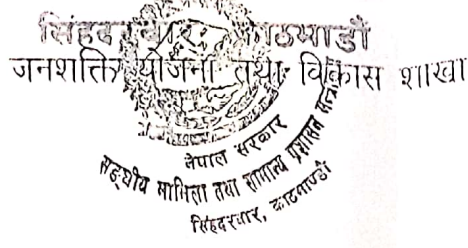 सिंहदरबार, काठमाडौं
जनशक्ति योजना तथा विकास शाखा
नेपाल सरकार
सङ्घीय मामिला तथा सामान्य प्रशासन मन्त्रा
सिंहदरबार, काठमाण्डौ